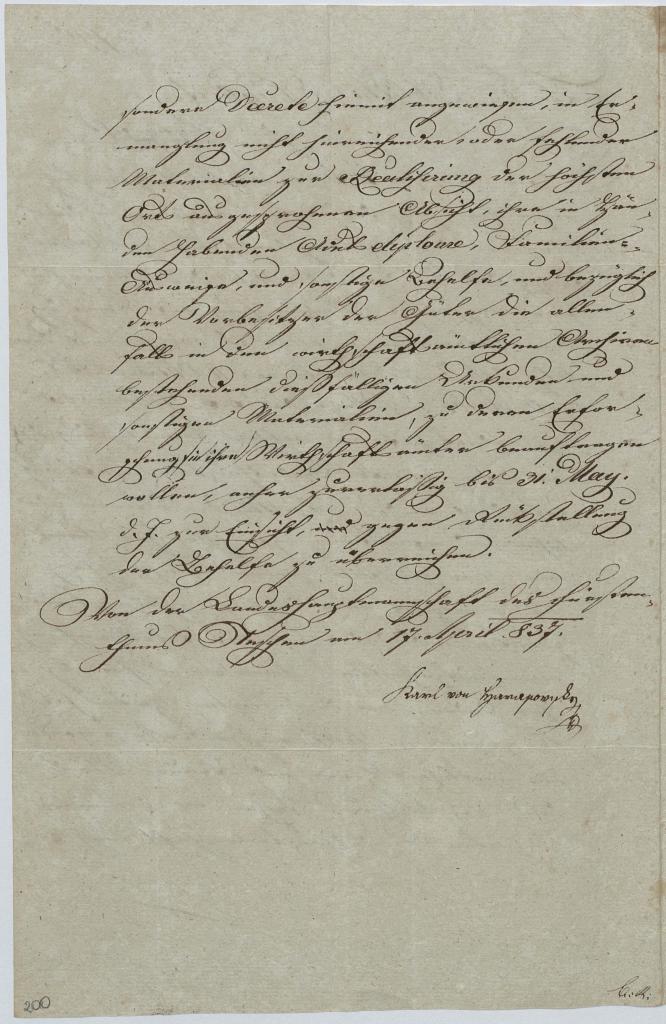 sondere Decrete hiemit angewiesen, in Er-
manglung nicht hinreichender oder fehlender
Materialien zur Realisirung der höchsten
Orts ausgesprochenen Absicht, ihre in Hän-
den habenden Adelsdiplome, Familien-
Ausweise, und sonstige Behelfe, und bezüglich
der Vorbesitzer der Güter die allen-
falls in den wirthschaftsämtlichen Archiven
bestehenden dießfälligen Urkunden und
sonstigen Materialien, zu deren Erfor-
schung sie ihre Wirthschaftsämter beauftragen
wollen, anher zuverlässig bis 31. May.
d. J. zur Einsicht, gegen Rückstellung
der Behelfe zu überreichen.
Von der Landeshauptmannschaft des Fürsten-
thums Teschen am 17. April 837.
Karl von
200